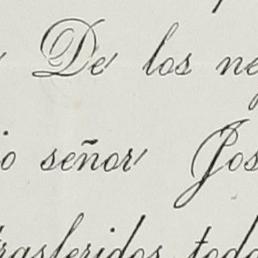 De los ne
io señor Jos
trasferidos todo